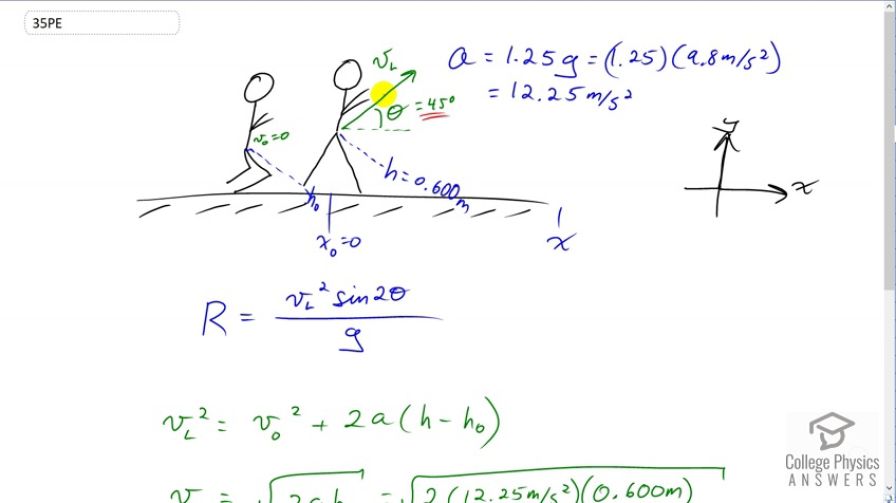 35PE
v_L
a = 1.25g = (1.25)(9.8m/s²)
= 12.25m/s²
θ = 45°
v₀=0
h = 0.600m
h₀
x₀=0
x
y
x
R = v_L² sin2θ / g
v_L² = v₀² + 2a(h - h₀)
v = √2ah = √2(12.25m/s²)(0.600m)
College Physics
ANSWERS